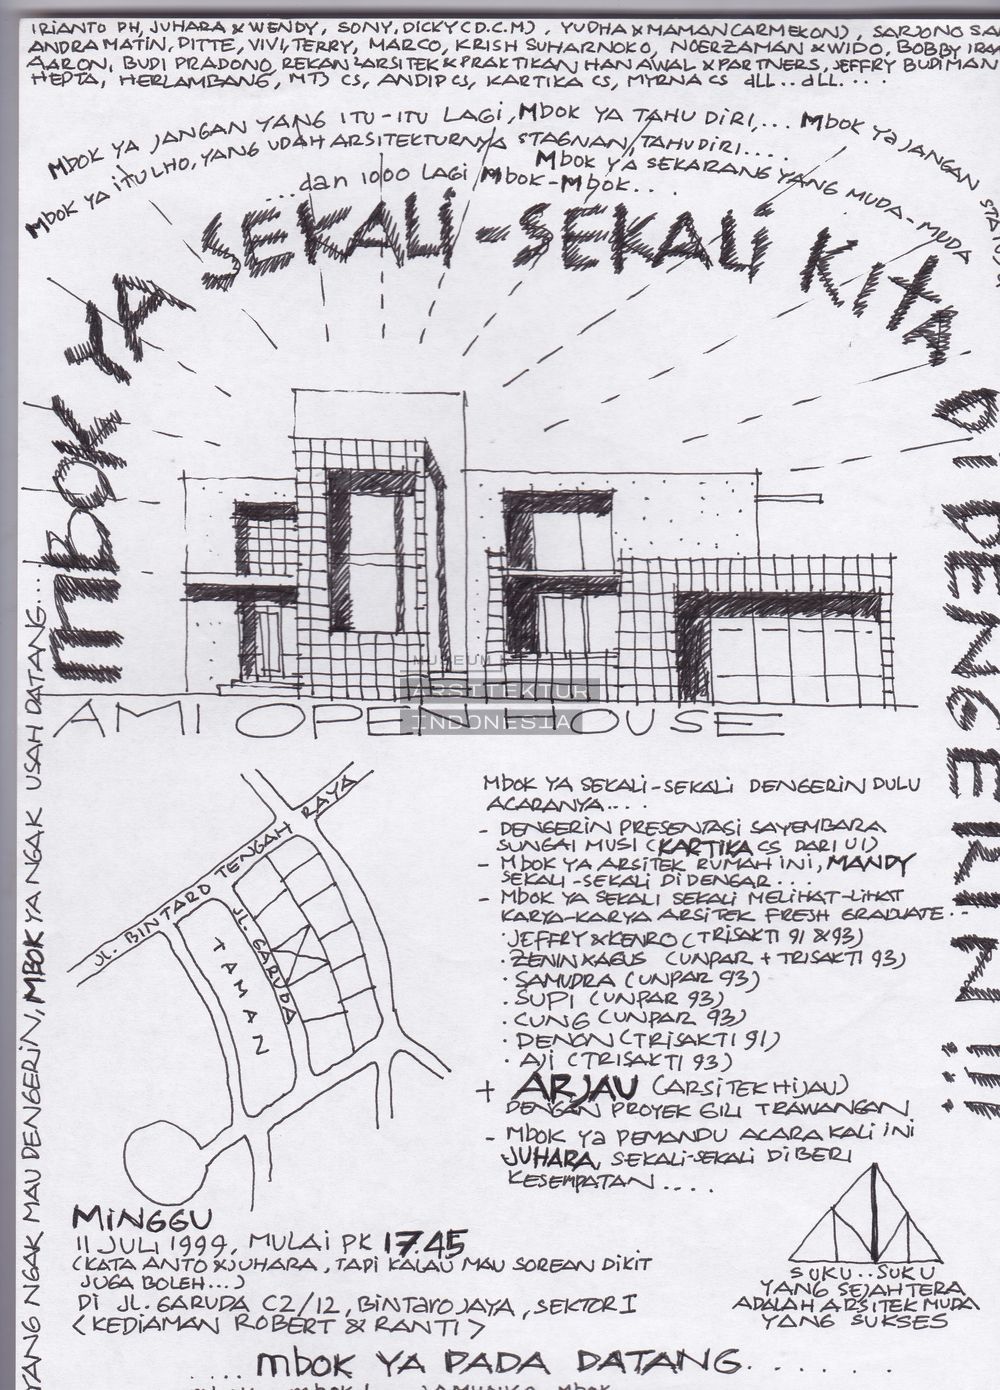 IRIANTO PH, JUHARA & WENDY, SONY, DICKY (D.C.M), YUDHA & MAMAN (ARMEKON), SARJONO SA
ANDRA MATIN, DITTE, VIVI, TERRY, MARCO, KRISH SUHARNOKO, NOERZAMAN & WIDO, BOBBY
AARON, BUDI PRADONO, REKAN2 ARSITEK & PRAKTIKAN HAN AWAL & PARTNERS, JEFFRY BUDIMAN
HEPTA, HERLAMBANG, MTJ CS, ANDIP CS, KARTIKA CS, MYRNA CS dLL...dLL....
MbOK YA JANGAN YANG ITU-ITU LAGI, MbOK YA TAHU DIRI,... MbOK YA JANGAN
MbOK YA ITU LHO, YANG UDAH ARSITEKTURNYA STAGNAN, TAHU DIRI.....
MbOK YA SEKARANG YANG MUDA-MUDA
...dan 1000 LAGI MbOK-MbOK...
MBOK YA SEKALI-SEKALI KITA DI DENGERIN!!
MUSEUM
ARSITEKTUR
INDONESIA
AMI OPEN HOUSE
YANG NGAK MAU DENGERIN, MBOK YA NGAK USAH DATANG...
JL. BINTARO TENGAH RAYA
JL. GARUDA
TAMAN
MbOK YA SEKALI-SEKALI DENGERIN DULU
ACARANYA....
- DENGERIN PRESENTASI SAYEMBARA
SUNGAI MUSI (KARTIKA CS DARI UI)
- MbOK YA ARSITEK RUMAH INI, MANDY
SEKALI-SEKALI DI DENGAR....
- MbOK YA SEKALI SEKALI MELIHAT-LIHAT
KARYA-KARYA ARSITEK FRESH GRADUATE..
· JEFFRY & KENRO (TRISAKTI 91 & 93)
· ZENIN & AGUS (UNPAR + TRISAKTI 93)
· SAMUDRA (UNPAR 93)
· SUPI (UNPAR 93)
· CUNG (UNPAR 93)
· DENON (TRISAKTI 91)
· AJI (TRISAKTI 93)
+ ARJAU (ARSITEK HIJAU)
DENGAN PROYEK GILI TRAWANGAN.
- MbOK YA PEMANDU ACARA KALI INI
JUHARA, SEKALI-SEKALI DIBERI
KESEMPATAN....
MINGGU
11 JULI 1999, MULAI PK 17.45
(KATA ANTO & JUHARA, TAPI KALAU MAU SOREAN DIKIT
JUGA BOLEH...)
DI JL. GARUDA C2/12, BINTARO JAYA, SEKTOR I
<KEDIAMAN ROBERT & RANTI>
SUKU..SUKU
YANG SEJAHTERA
ADALAH ARSITEK MUDA
YANG SUKSES
....mbOK YA PADA DATANG.......